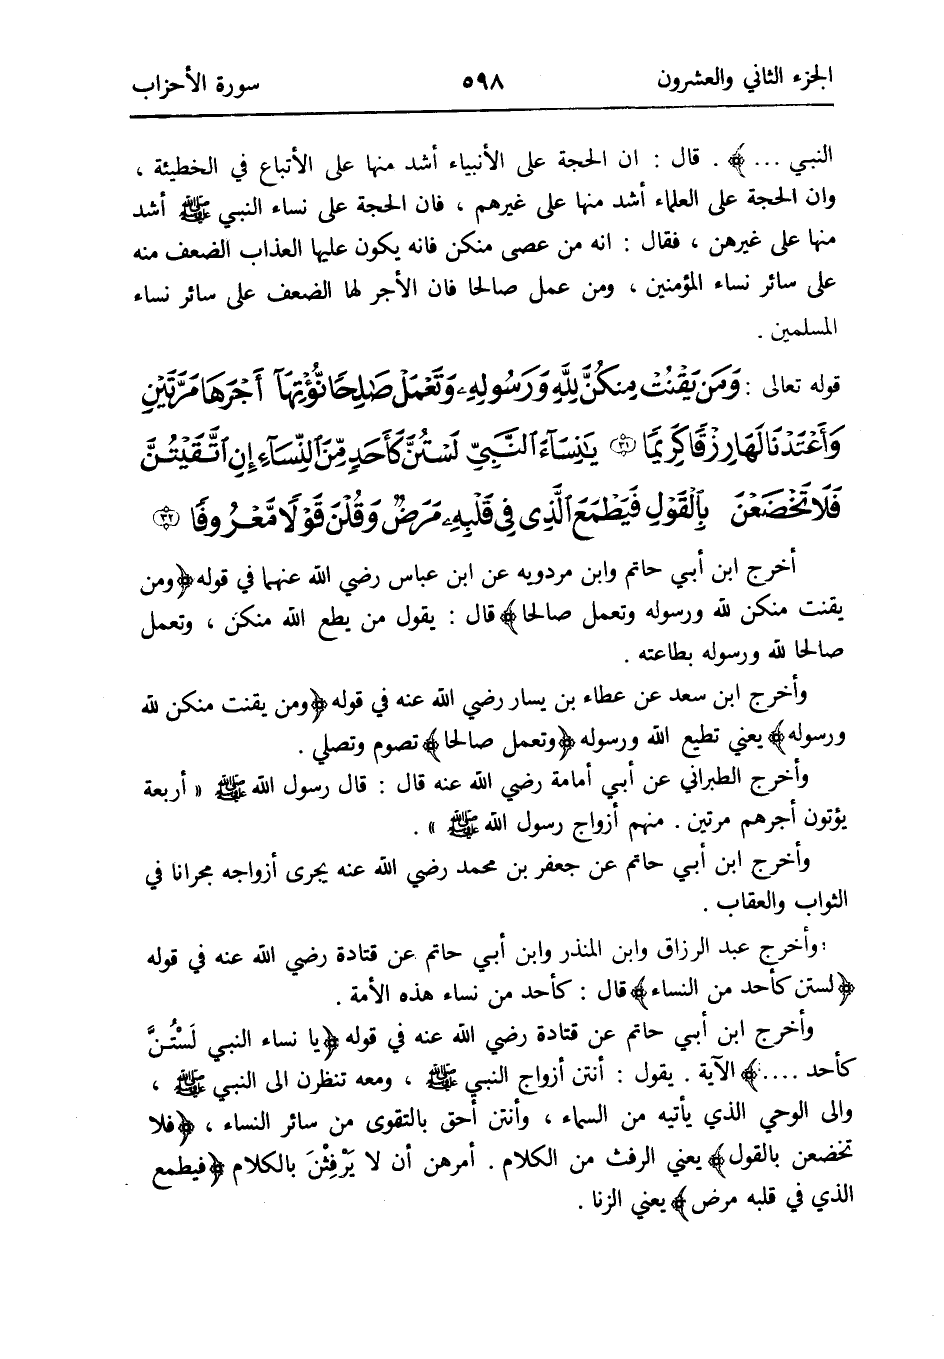 الجزء الثاني والعشرون ٥٩٨ سورة الأحزاب
النبي ... ﴾ . قال : ان الحجة على الأنبياء أشد منها على الأتباع في الخطيئة ،
وان الحجة على العلماء أشد منها على غيرهم ، فان الحجة على نساء النبي ﷺ أشد
منها على غيرهن ، فقال : انه من عصى منكن فانه يكون عليها العذاب الضعف منه
على سائر نساء المؤمنين ، ومن عمل صالحا فان الأجر لها الضعف على سائر نساء
المسلمين .
قوله تعالى : وَمَن يَقْنُتْ مِنكُنَّ لِلَّهِ وَرَسُولِهِۦ وَتَعْمَلْ صَٰلِحًا نُّؤْتِهَآ أَجْرَهَا مَرَّتَيْنِ
وَأَعْتَدْنَا لَهَا رِزْقًا كَرِيمًا ۝٣١ يَٰنِسَآءَ ٱلنَّبِىِّ لَسْتُنَّ كَأَحَدٍ مِّنَ ٱلنِّسَآءِ إِنِ ٱتَّقَيْتُنَّ
فَلَا تَخْضَعْنَ بِٱلْقَوْلِ فَيَطْمَعَ ٱلَّذِى فِى قَلْبِهِۦ مَرَضٌ وَقُلْنَ قَوْلًا مَّعْرُوفًا ۝٣٢
أخرج ابن أبي حاتم وابن مردويه عن ابن عباس رضي الله عنهما في قوله ﴿ ومن
يقنت منكن لله ورسوله وتعمل صالحا ﴾ قال : يقول من يطع الله منكن ، وتعمل
صالحا لله ورسوله بطاعته .
وأخرج ابن سعد عن عطاء بن يسار رضي الله عنه في قوله ﴿ ومن يقنت منكن لله
ورسوله ﴾ يعني تطيع الله ورسوله ﴿ وتعمل صالحا ﴾ تصوم وتصلي .
وأخرج الطبراني عن أبي أمامة رضي الله عنه قال : قال رسول الله ﷺ « أربعة
يؤتون أجرهم مرتين . منهم أزواج رسول الله ﷺ » .
وأخرج ابن أبي حاتم عن جعفر بن محمد رضي الله عنه يجرى أزواجه مجرانا في
الثواب والعقاب .
وأخرج عبد الرزاق وابن المنذر وابن أبي حاتم عن قتادة رضي الله عنه في قوله
﴿ لستن كأحد من النساء ﴾ قال : كأحد من نساء هذه الأمة .
وأخرج ابن أبي حاتم عن قتادة رضي الله عنه في قوله ﴿ يا نساء النبي لَسْتُنَّ
كأحد .... ﴾ الآية . يقول : أنتن أزواج النبي ﷺ ، ومعه تنظرن الى النبي ﷺ ،
والى الوحي الذي يأتيه من السماء ، وأنتن أحق بالتقوى من سائر النساء ، ﴿ فلا
تخضعن بالقول ﴾ يعني الرفث من الكلام . أمرهن أن لا يَرْفِثْنَ بالكلام ﴿ فيطمع
الذي في قلبه مرض ﴾ يعني الزنا .